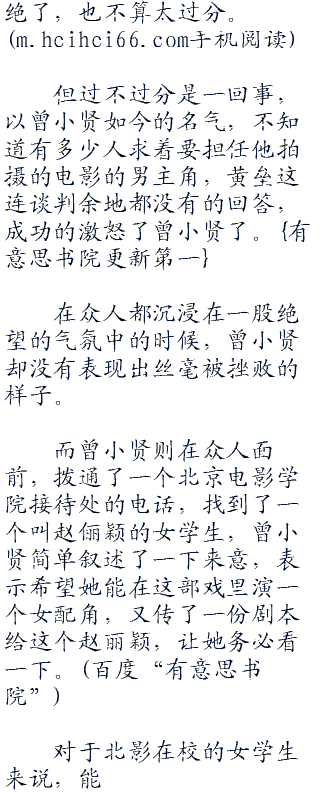 绝了，也不算太过分。
(m.hcihci66.com手机阅读)
但过不过分是一回事，
以曾小贤如今的名气，不知
道有多少人求着要担任他拍
摄的电影的男主角，黄垒这
连谈判余地都没有的回答，
成功的激怒了曾小贤了。{有
意思书院更新第一}
在众人都沉浸在一股绝
望的气氛中的时候，曾小贤
却没有表现出丝毫被挫败的
样子。
而曾小贤则在众人面
前，拨通了一个北京电影学
院接待处的电话，找到了一
个叫赵俪颖的女学生，曾小
贤简单叙述了一下来意，表
示希望她能在这部戏里演一
个女配角，又传了一份剧本
给这个赵丽颖，让她务必看
一下。(百度“有意思书
院”)
对于北影在校的女学生
来说，能